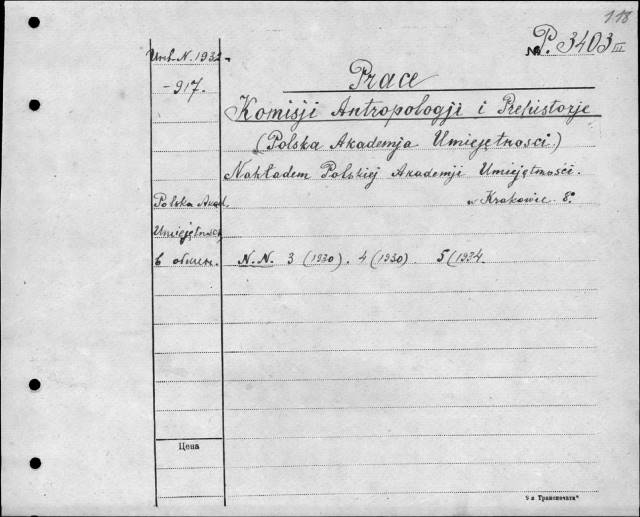 118
№ P. 3403 III
Инв. N. 1932 -
- 917.
Prace
Komisji Antropologji i Prehistorje
(Polska Akademja Umiejętnosci)
Nakładem Polskiej Akademji Umiejętności.
w Krakowie 8°
Polska Akad.
Umiejętnosc
в обмен.
N.N. 3 (1930). 4 (1930) 5 (1934.
Цена
9 я Транспечать"